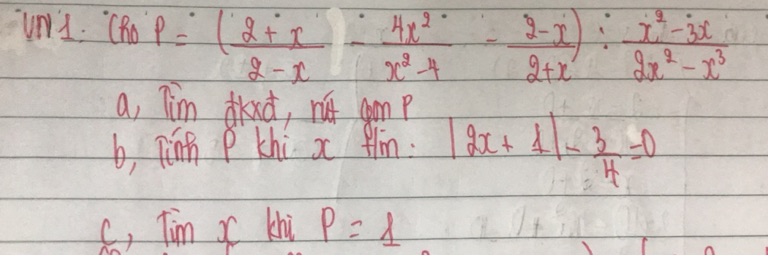 VN1. Cho P = (2+x/2-x - 4x²/x²-4 - 2-x/2+x) : x²-3x/2x²-x³
a, Tìm đkxđ, rút gọn P
b, Tính P khi x t/m: |2x+1| - 3/4 = 0
c, Tìm x khi P = 1